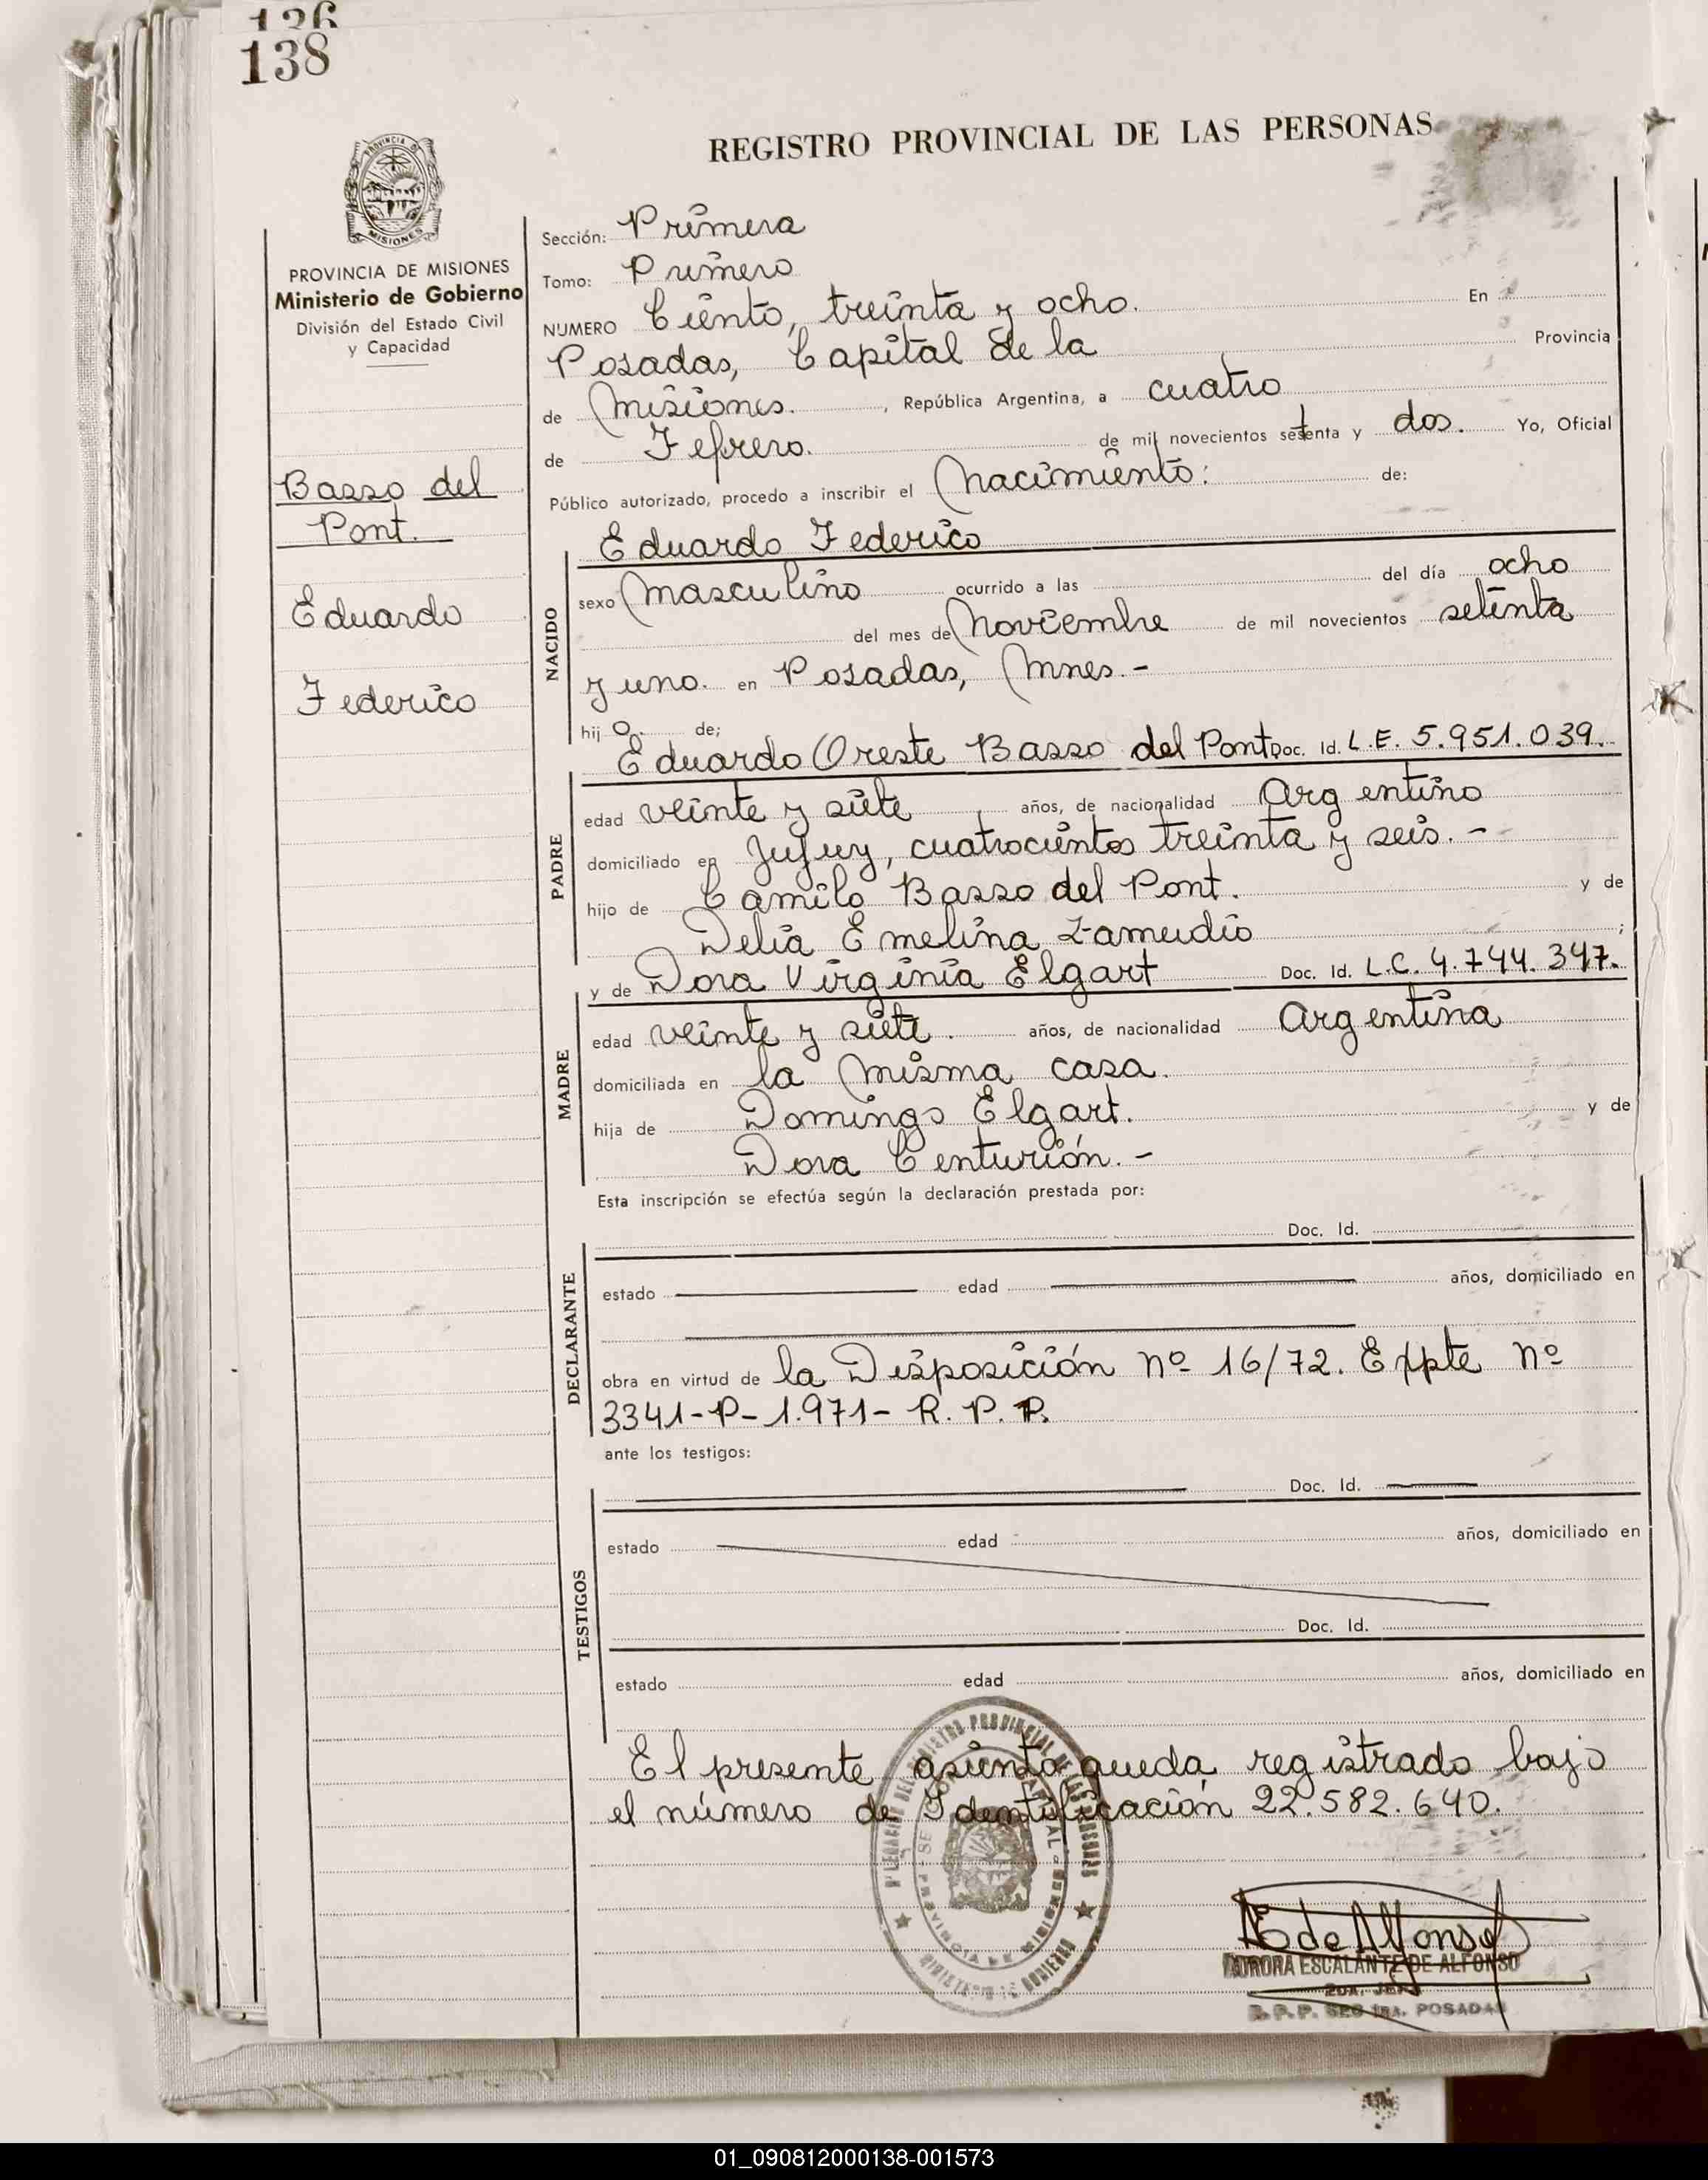 136
138
REGISTRO PROVINCIAL DE LAS PERSONAS
PROVINCIA DE MISIONES
Ministerio de Gobierno
División del Estado Civil
y Capacidad
Basso del
Pont.
Eduardo
Federico
Sección: Primera
Tomo: Primero
NUMERO Ciento, treinta y ocho. En
Posadas, Capital de la Provincia
de Misiones. , República Argentina, a cuatro
de Febrero. de mil novecientos setenta y dos. Yo, Oficial
Público autorizado, procedo a inscribir el Nacimiento: de:
Eduardo Federico
NACIDO
sexo Masculino ocurrido a las del día ocho
del mes de Noviembre de mil novecientos setenta
y uno. en Posadas, Mnes.-
hij o. de;
Eduardo Oreste Basso del Pont Doc. Id. L.E. 5.951.039.
PADRE
edad veinte y siete años, de nacionalidad Argentino
domiciliado en Jujuy, cuatrocientos treinta y seis.-
hijo de Camilo Basso del Pont. y de
Delia Emelina Zamudio ;
y de Dora Virginia Elgart Doc. Id. L.C. 4.744.347.
MADRE
edad veinte y siete. años, de nacionalidad Argentina
domiciliada en la misma casa.
hija de Domingo Elgart. y de
Dora Centurión.-
Esta inscripción se efectúa según la declaración prestada por:
Doc. Id.
DECLARANTE
estado edad años, domiciliado en
obra en virtud de la Disposición Nº 16/72. Expte Nº
3341-P-1.971- R. P. P.
ante los testigos:
Doc. Id.
TESTIGOS
estado edad años, domiciliado en
Doc. Id.
estado edad años, domiciliado en
El presente asiento queda registrado bajo
el número de Identificación 22.582.640.
AE de Alfonso
AURORA ESCALANTE DE ALFONSO
2DA. JEFE
R.P.P. SEC 1RA. POSADAS
01_090812000138-001573